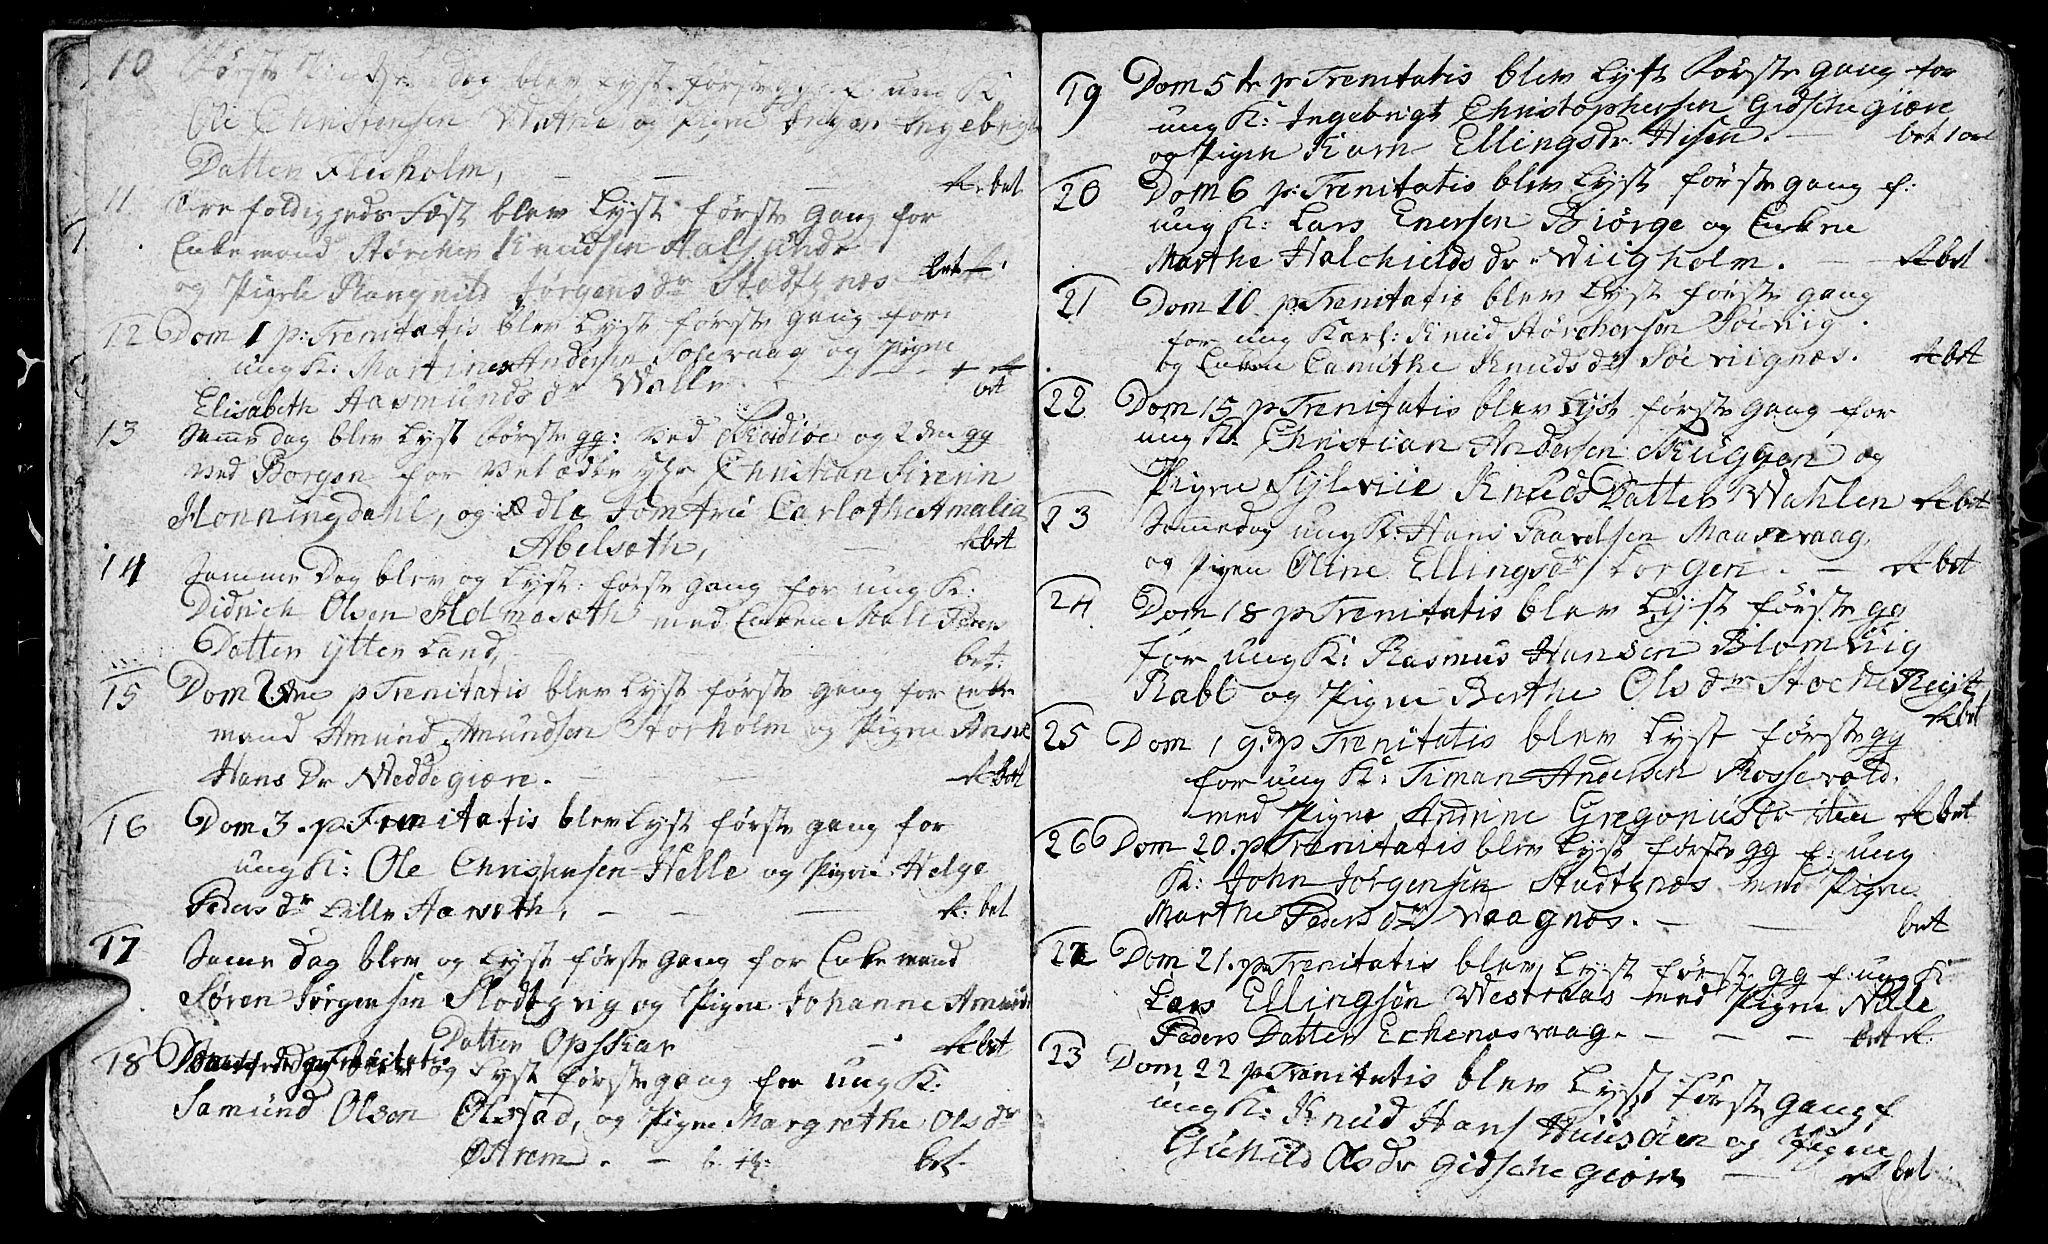 10 Første dag blev Lyst første g ung K
Ole Christensen Watne og Pigen Inger Ingebrigts
Datter Flisholm, — — — R. bet
11 Tre foldigheds Fæst blev Lyst første Gang for
Enkemand Størcher Knudsen Aalsunde
og Pigen Rangnild Jørgens dr Stadtsnæs bet
12 Dom 1 p: Trenitatis blev Lyst første gang for
ung K: Martines Andersen Solevaag og Pigen
Elisabeth Aasmunds dr Walle bet
13 Samme dag blev Lyst første gg: ved og 2den gg
ved Borgen for Velædle Hr Christian Siverin
Honningdahl, og Ædle Jomfrü Carlothe Amalia
Abelsæth, — Rbet
14 Samme Dag blev og Lyst første gang for ung K:
Didrich Olsen Holmesæth med Enken Mali Peders
Datter ytter Land, bet:
15 Dom 2den p Trenitatis blev Lyst første gang for Enke
mand Amund Amundsen Storholm og Pigen Anne
Hans Dr Weddegiære. — — R bet
16 Dom 3. p Trenitatis blev Lyst første gang for
ung K: Ole Christensen Helle og Pigen Helge
Peders dr Lille Aarseth, — — — R. bet
17 Samme dag blev og Lyst første gang for Enkemand
Søren Jørgensen Slodtsvig og Pigen Johanne Amunds
Datter Opskar — R bet
18 og Lyst første gang for ung K:
Samund Olsen Olsstad, og Pigen Margrethe Olsdr
Østrem. — bet
19 Dom 5te p Trenitatis blev Lyst Første gang for
ung K: Ingebrigt Christophersen Gidschegiære
og Pigen Karn Ellingsdr Hesen. — bet
20 Dom 6 p: Trenitatis blev Lyst første gang f:
ung K: Lars Enersen Biørge og Enkne
Marthe Halchields dr Wiigholm. — R bet
21 Dom 10 p: Trenitatis blev Lyst første gang
for ung Karl: Knud Størchersen Søeviig
og Enken Canuthe Knuds dr Søe viignæs. R bet
22 Dom 15 p Trenitatis blev Lyst første gang for
ung K. Christian Andersen Skuggen og
Pigen Sylviie Knuds Datter Wahlen R bet
23 Samme dag ung K: Hans Paavelsen Mausevaag,
og Pigen Oline Ellingsdr Lorgen. — R bet
24 Dom 18 p Trenitatis blev Lyst første gg
for ung K: Rasmus Hansen Blomviig
Rabl og Pigen Berthe Olsdr Stoche Reijte
R bet
25 Dom 19. p Trenitatis blev Lyst første gg
for ung K: Timan Andersen Rossevold.
med Pigen Andrine Gregoriusdr iten R bet
26 Dom 20. p Trenitatis blev Lyst første gg f: ung
K: John Jørgensen Stadtsnæs med Pigen
Marthe Peders dr Waagnæs. — — bet
27 Dom 21. p Trenitatis blev Lyst første gg f: ung K:
Lars Ellingsøn Westraas med Pigen Nille
Peders Datter Echenæsvaag. — — — bet R:
23 Dom 22 p Trenitatis blev Lyst første gang f
ung K: Knud Hans Huusøen og Pigen
Gunild Olsdr Gidschegiøre — R bet